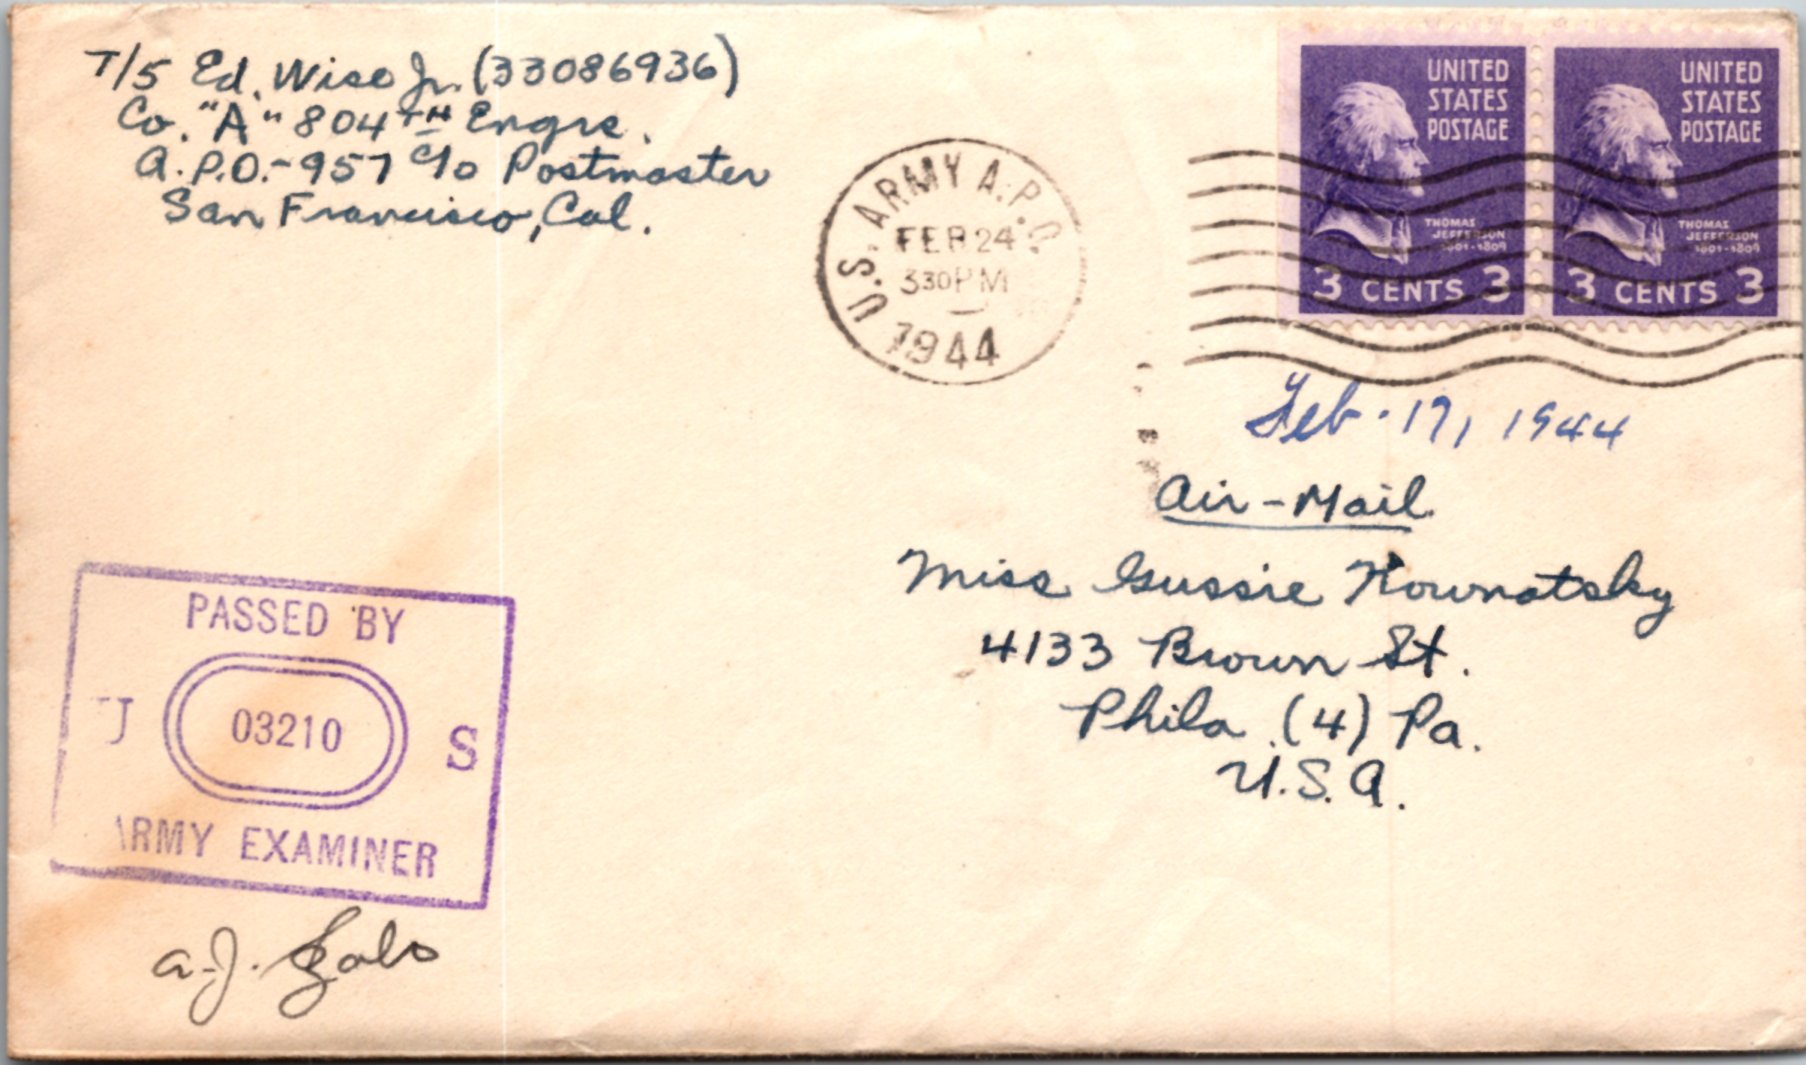 T/5 Ed. Wise Jr. (33086936)
Co. "A" 804TH Engrs.
A.P.O.-957 c/o Postmaster
San Francisco, Cal.
U.S. ARMY A.P.O.
FEB 24
330PM
1944
UNITED
STATES
POSTAGE
THOMAS
JEFFERSON
1801-1809
3 CENTS 3
UNITED
STATES
POSTAGE
THOMAS
JEFFERSON
1801-1809
3 CENTS 3
Feb. 17, 1944
Air-Mail
Miss Gussie Kownatsky
4133 Brown St.
Phila (4) Pa.
U.S.A.
PASSED BY
U 03210 S
ARMY EXAMINER
A.J.